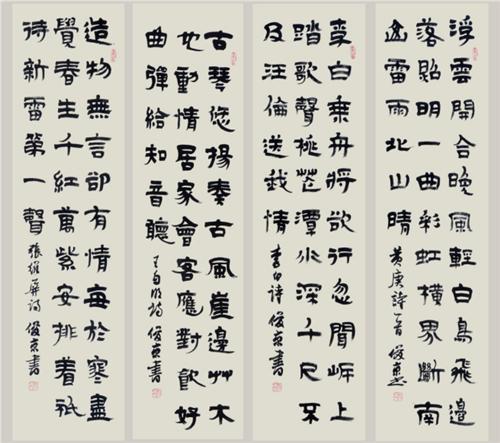 浮雲開合晚風輕白鳥飛邊
落照明一曲彩虹橫界斷南
山雷雨北山晴
黃庚詩一首 俊京書
李白乘舟將欲行忽聞岸上
踏歌聲桃花潭水深千尺不
及汪倫送我情
李白詩 俊京書
古琴悠揚奏古風崖邊艸木
也動情居家會客應對飲好
曲彈給知音聽
俊京書
造物無言卻有情每於寒盡
覺春生千紅萬紫安排着祇
待新雷第一聲
張維屏詩 俊京書